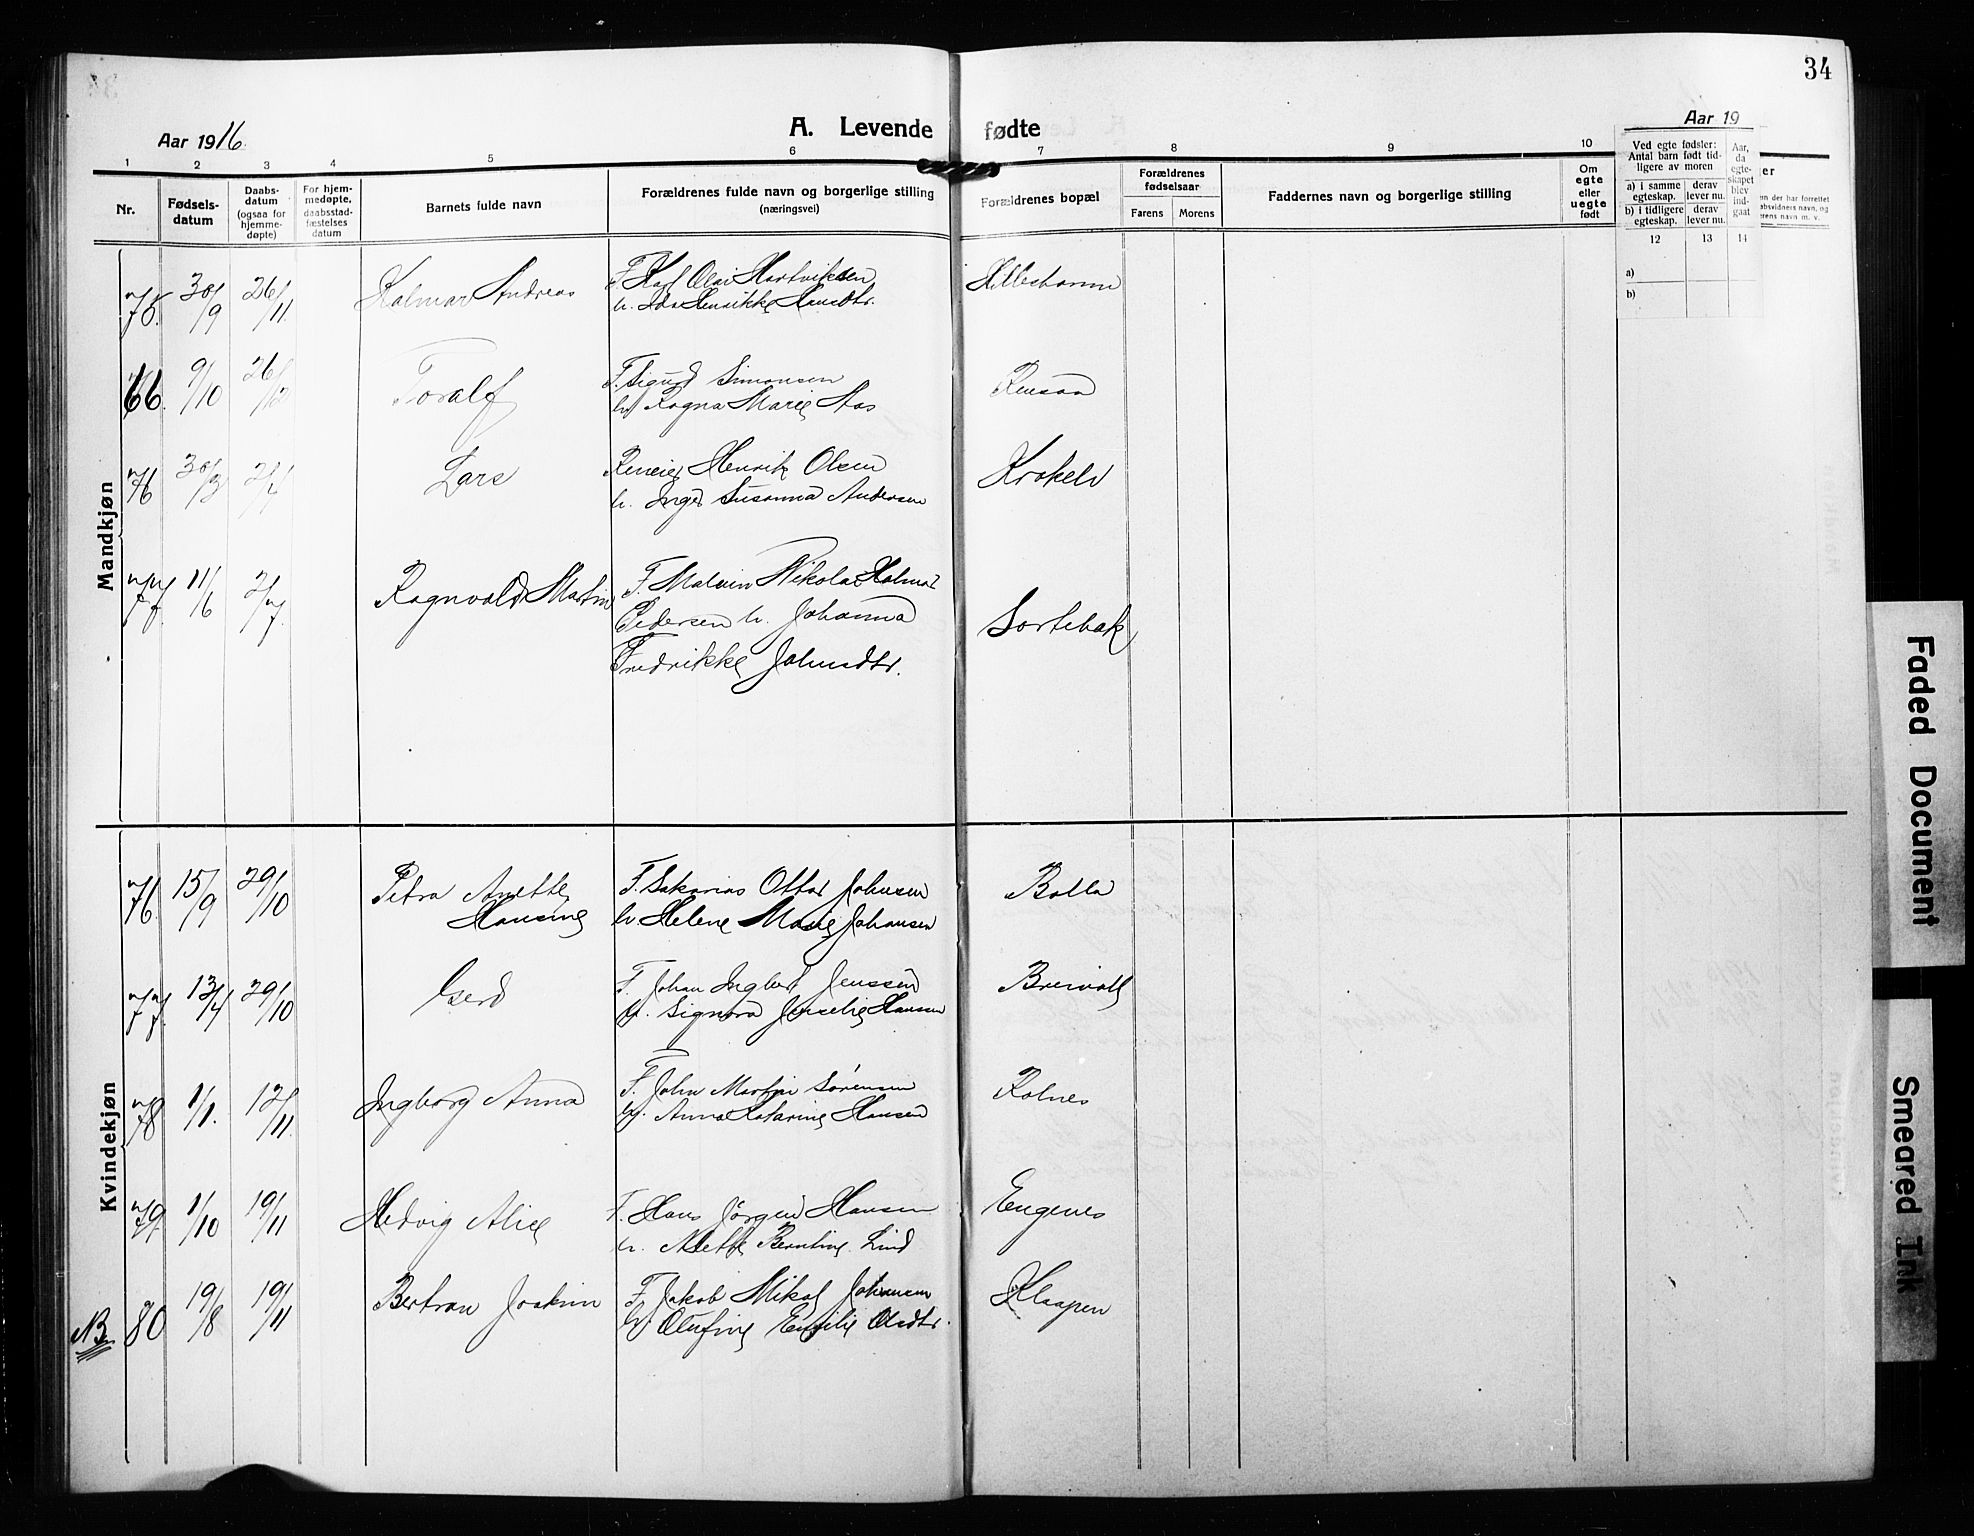 34
Aar 1916.
A. Levende fødte
Aar 19
1 2 3 4 5 6 7 8 9 10
Nr.
Fødsels-
datum
Daabs-
datum
(ogsaa for
hjemme-
døpte)
For hjem-
medøpte,
daabsstad-
fæstelses
datum
Barnets fulde navn
Forældrenes fulde navn og borgerlige stilling
(næringsvei)
Forældrenes bopæl
Forældrenes
fødselsaar
Farens Morens
Faddernes navn og borgerlige stilling
Om
egte
eller
uegte
født
Ved egte fødsler:
Antal barn født tid-
ligere av moren
a) i samme
egteskap.
derav
lever nu.
b) i tidligere
egteskap.
derav
lever nu.
Aar,
da
egte-
skapet
blev
ind-
gaat
12 13 14
a)
b)
Mandkjøn
75. 30/9 26/11 Halmar Andreas F. Karl Olai Hartviksen
h. Ida Henrikke Hansdtr.
66. 9/10 26/12 Toralf F. Sigurd Simonsen
h. Ragna Marie Aas
76 30/3 2/7 Lars Reneier Henrik Olsen Krokelv
h. Inger Susanna Andersen
77. 11/6 2/7. Ragnvald Martin F. Malvin Nikolai Halmar
Pedersen h. Johanna Sortebak
Fredrikke Johnsdtr.
Kvindekjøn
76. 15/9 29/10 Petra Anette F. Sakarias Ottar Johnsen Bolla
Hansine h. Helene Marie Johansen
77. 13/4 29/10 Gerd F. Johan Ingbert Jenssen Breivoll
h. Signora Jenselie Hansen
78 1/1. 12/11. Ingborg Anna F. John Martin Sørensen Rolnes
h. Anna Katarine Hansen
79. 1/10 19/11 Hedvig Alice F. Hans Jørgen Hansen Engenes
h. Alette Berntine Lind
NB 80 19/8 19/11 Bertran Joakim F. Jakob Mikal Johansen Klaapen
h. Olufine Emelie Olsdtr.
Faded Document
Smeared Ink